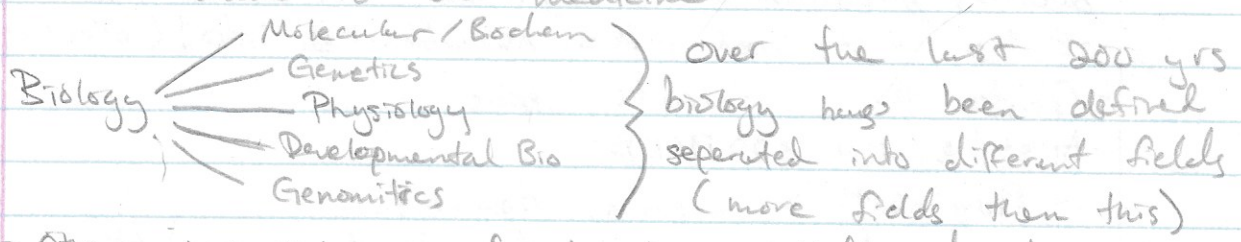 medicine
Molecular / Biochem
Genetics
Biology
Physiology
Developmental Bio
Genomitics
over the last 200 yrs
biology has been defined
seperated into different fields
(more fields then this)